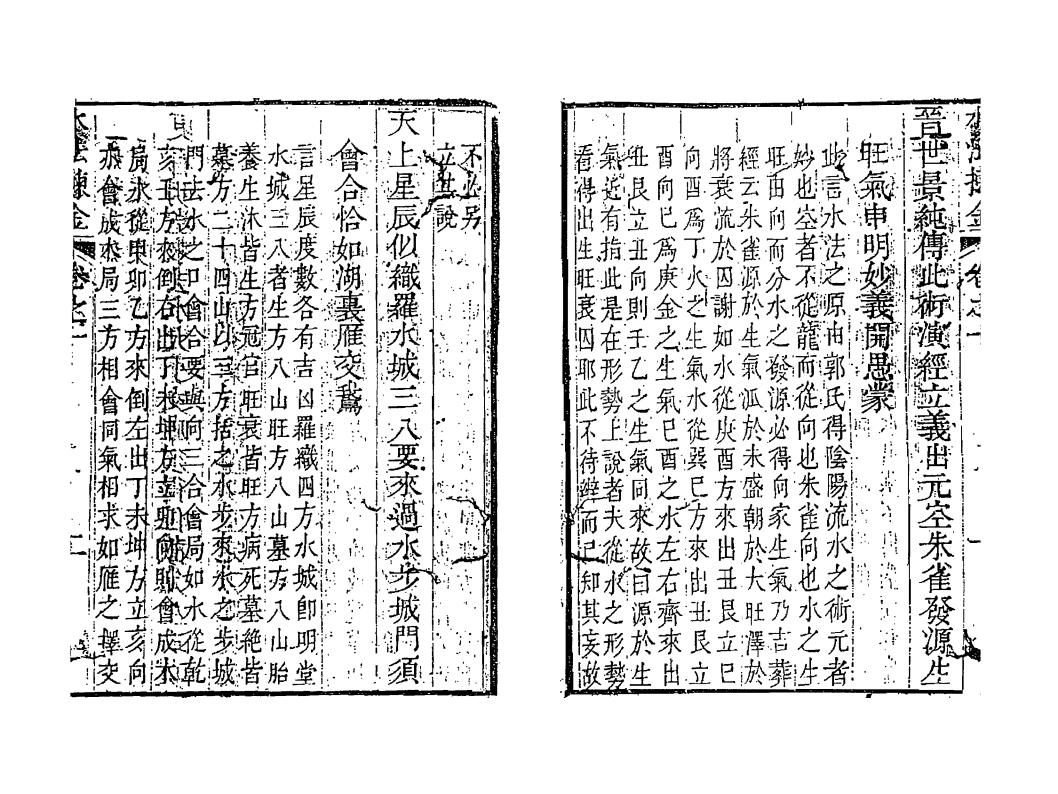 水法揀金 卷之一 一
晋世景純傳此術演經立義出元空朱雀發源生
旺氣申明妙義開愚蒙
此言水法之原由郭氏得陰陽流水之術元者
妙也空者不從龍而從向也朱雀向也水之生
旺由向而分水之發源必得向家生氣乃吉葬
經云朱雀源於生氣派於未盛朝於大旺澤於
將衰流於囚謝如水從庚酉方來出丑艮立巳
向酉爲丁火之生氣水從巽巳方來出丑艮立
酉向巳爲庚金之生氣巳酉之水左右齊來出
丑艮立丑向則壬乙之生氣同來故曰源於生
氣近有指此是在形勢上說者夫從水之形勢
看得出生旺衰囚耶此不待辯而已知其妄故
不必另
立其說
天上星辰似織羅水城三八要來過水步城門須
會合恰如湖裏雁交鵞
言星辰度數各有吉凶羅織四方水城卽明堂
水城三八者生方八山旺方八山墓方八山胎
養生沐皆生方冠官旺衰皆旺方病死墓絶皆
墓方二十四山以三方括之水步來水之步城
門去水之口會合要與向三合會局如水從乾
亥壬方來倒右出丁未坤方立卯向則會成木
局水從甲卯乙方來倒左出丁未坤方立亥向
亦會成木局三方相會同氣相求如雁之擇交
水法揀金 卷之一 二